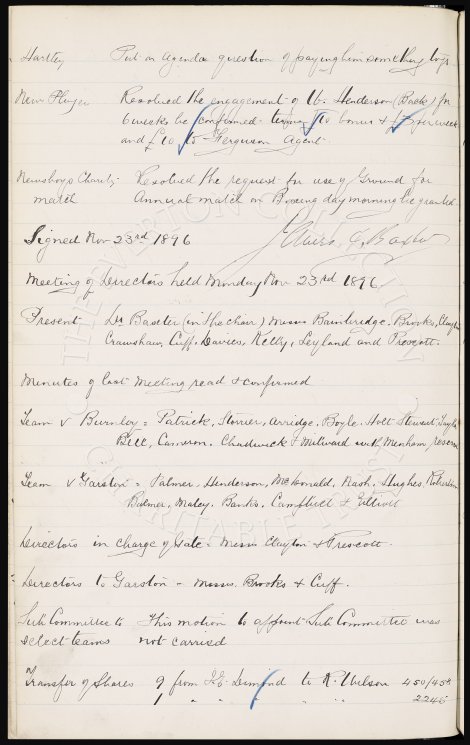 Hartley Put on Agenda question of paying him something
New Player Resolved the engagement of W. Henderson (Back) for
6 weeks be confirmed. terms £10 bonus + £3 per week
and £10 to Ferguson Agent.
Newsboys Charity Resolved the request for use of Ground for
match Annual match on Boxing day morning be granted.
Signed Nov 23rd 1896 James C. Baxter
Meeting of Directors held Monday Nov 23rd 1896
Present Dr Baxter (in the chair) Messrs Bainbridge, Brooks, Clayton
Crawshaw, Cuff, Davies, Kelly, Leyland and Prescott.
Minutes of last Meeting read & confirmed
Team v Burnley = Patrick, Storrier, Arridge, Boyle, Holt Stewart, Taylor
Bell, Cameron, Chadwick & Milward with Menham, reserve
Team v Garston = Palmer, Henderson, McDonald, Nash, Hughes, Robertson
Balmer, Maley, Banks, Campbell & Elliott
Directors in charge of Gate - Messrs Clayton & Prescott.
Directors to Garston - Messrs. Brooks & Cuff.
Sub Committee to This motion to appoint Sub Committee was
select teams not carried
Transfer of Shares 9 from J.E. Dimond to R. Wilson 450/458
1 " " " " 2246
THE EVERTON COLLECTION
CHARITABLE TRUST